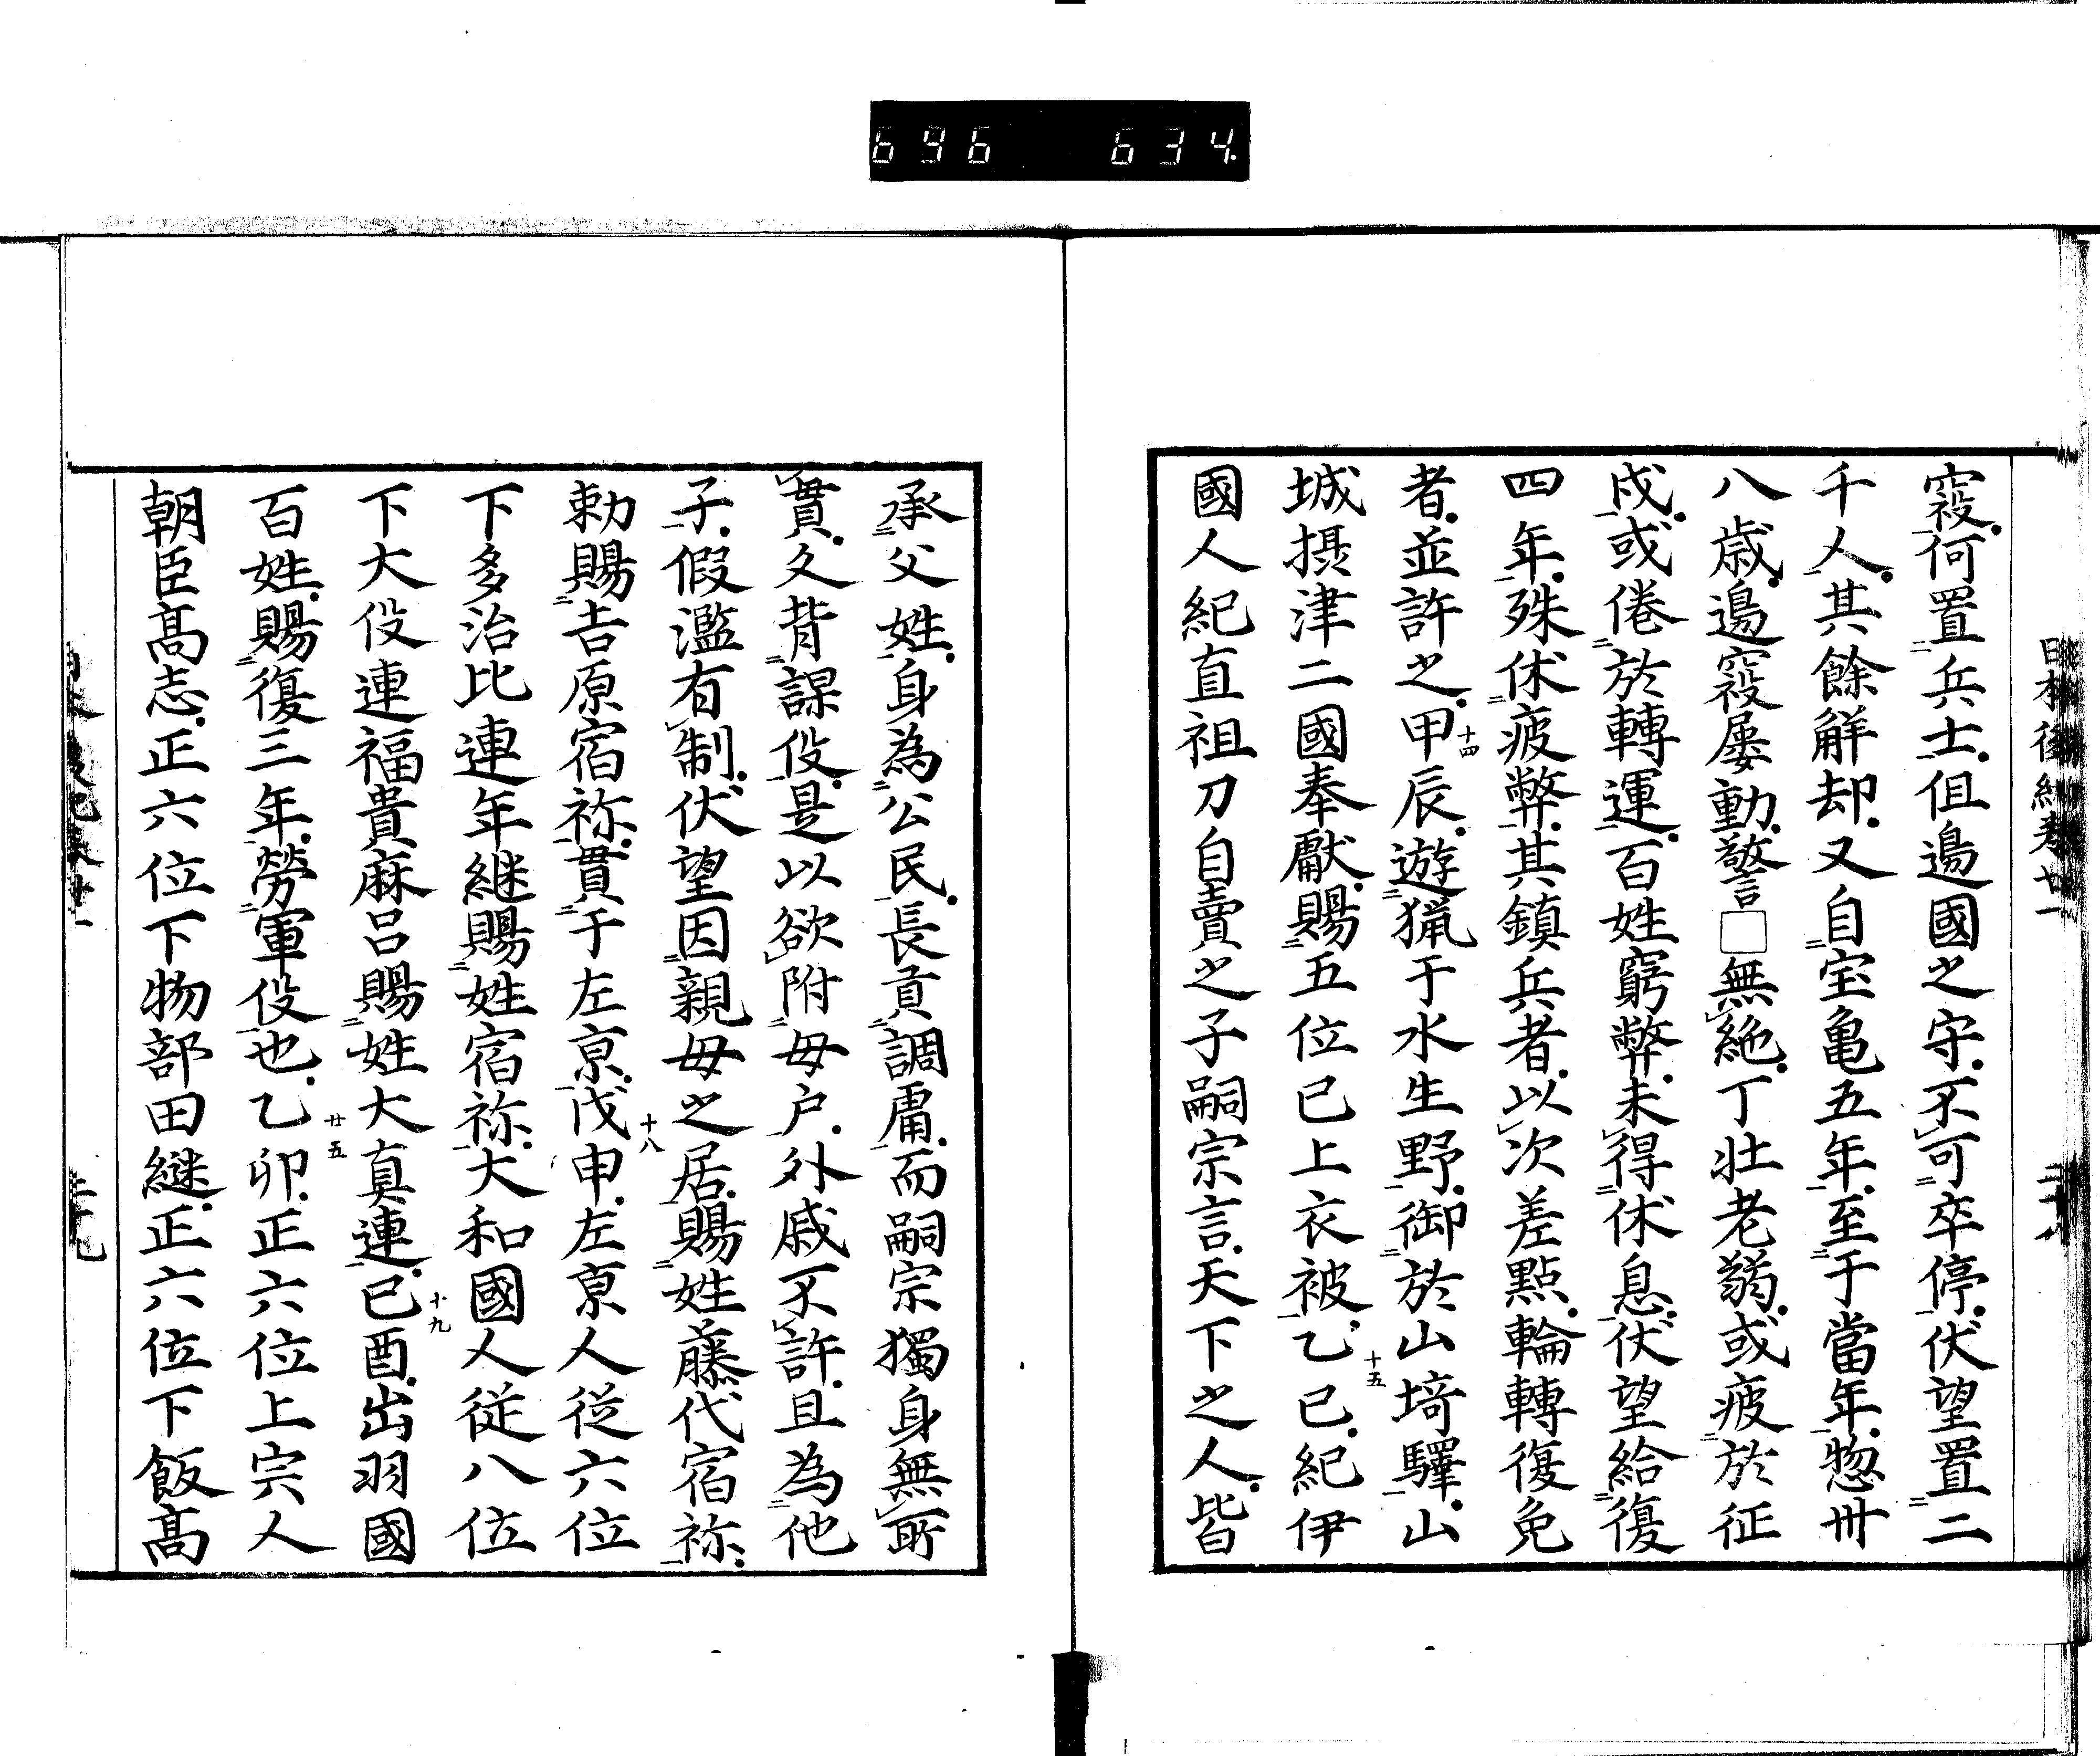 696 634
日本後紀卷廿一
二十八
寇。何置兵士。但邊國之守。不可卒停。伏望置二
千人。其餘解却。又自宝亀五年。至于當年。惣卅
八歳。邊寇屡動。警□無絶。丁壮老弱。或疲於征
戍。或倦於轉運。百姓窮弊。未得休息。伏望給復
四年。殊休疲弊。其鎮兵者。以次差點。輪轉復免
者。並許之。甲辰。遊猟于水生野。御於山埼驛。山
十四
城摂津二國奉獻。賜五位已上衣被。乙巳。紀伊
十五
國人紀直祖刀自賣之子嗣宗言。天下之人。皆
承父姓。身為公民。長貢調庸。而嗣宗獨身無所
貫。久背課役。是以欲附母戸。外戚不許。且為他
子。假濫有制。伏望因親母之居。賜姓藤代宿祢。
勅賜吉原宿祢。貫于左京。戊申。左京人従六位
十八
下多治比連年継賜姓宿祢。大和國人従八位
下大伇連福貴麻呂賜姓大真連。己酉。出羽國
十九
百姓。賜復三年。勞軍役也。乙卯。正六位上宍人
廿五
朝臣髙志。正六位下物部田継。正六位下飯髙